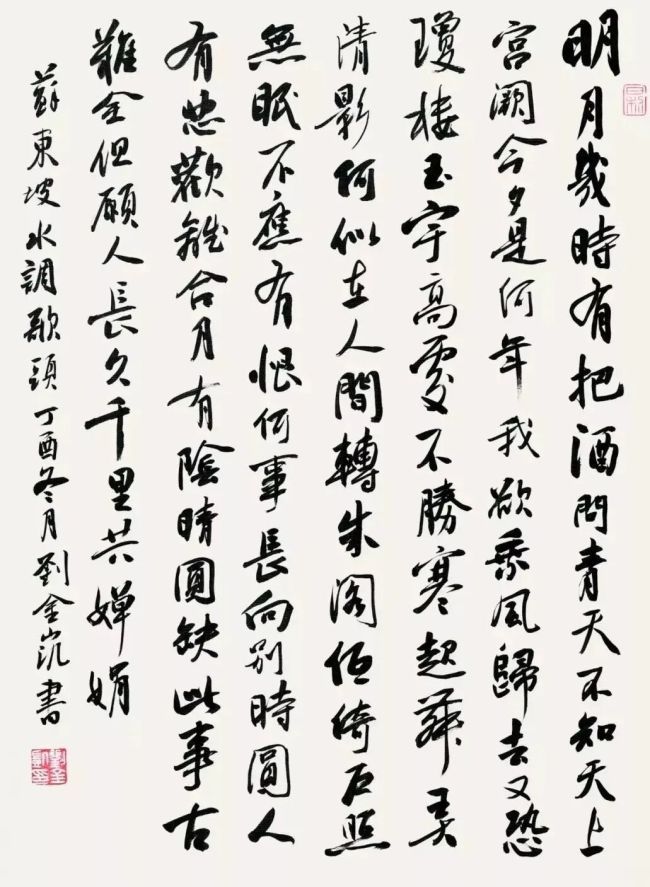 明月幾時有把酒問青天不知天上
宮闕今夕是何年我欲乘風歸去又恐
瓊樓玉宇高處不勝寒起舞弄
清影何似在人間轉朱閣低綺戶照
無眠不應有恨何事長向別時圓人
有悲歡離合月有陰晴圓缺此事古
難全但願人長久千里共嬋娟
蘇東坡水調歌頭丁酉冬月劉金凱書